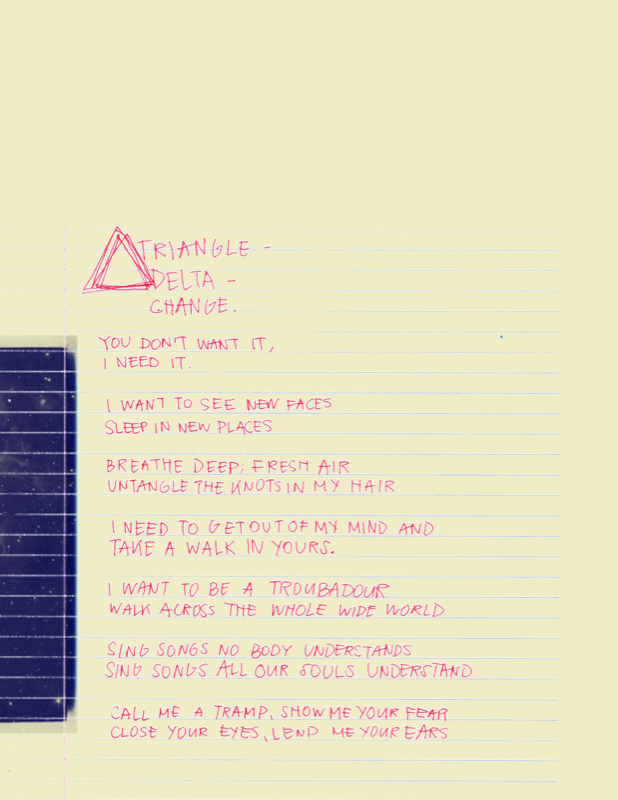 TRIANGLE -
DELTA -
CHANGE.
YOU DON'T WANT IT,
I NEED IT.
I WANT TO SEE NEW FACES
SLEEP IN NEW PLACES
BREATHE DEEP; FRESH AIR
UNTANGLE THE KNOTS IN MY HAIR
I NEED TO GET OUT OF MY MIND AND
TAKE A WALK IN YOURS.
I WANT TO BE A TROUBADOUR
WALK ACROSS THE WHOLE WIDE WORLD
SING SONGS NO BODY UNDERSTANDS
SING SONGS ALL OUR SOULS UNDERSTAND
CALL ME A TRAMP, SHOW ME YOUR FEAR
CLOSE YOUR EYES, LEND ME YOUR EARS